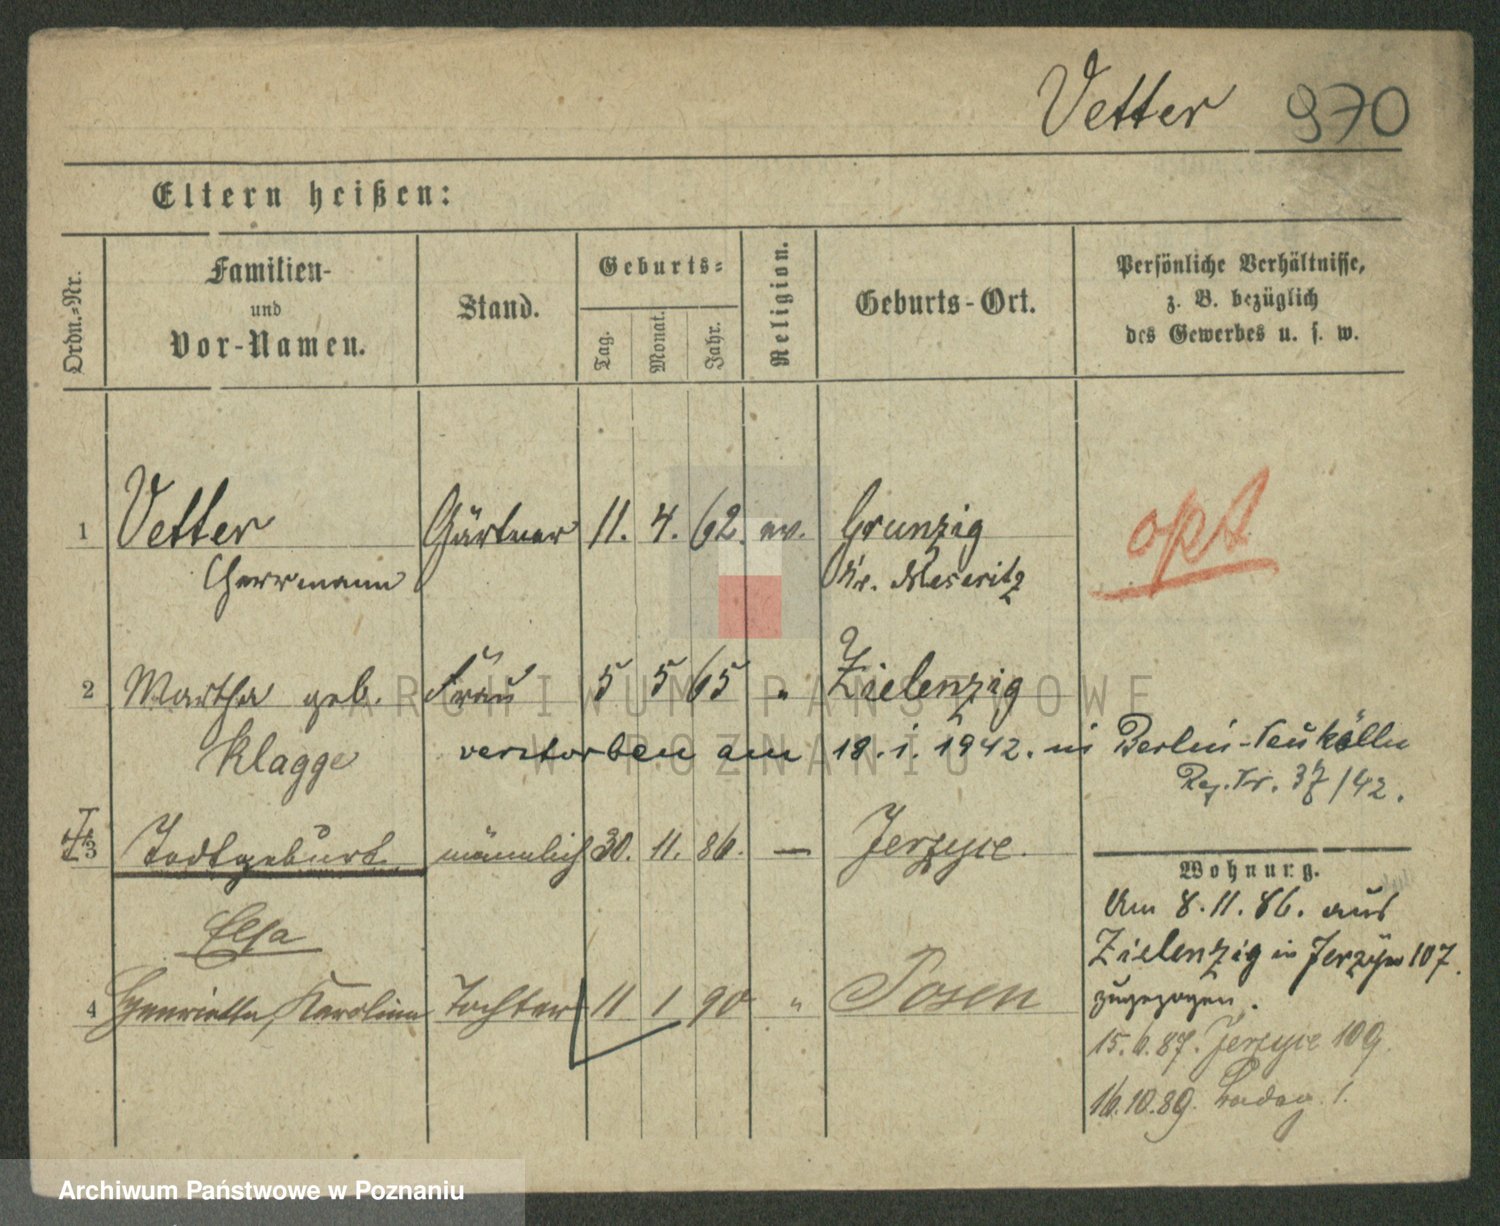 Vetter 970
Eltern heißen:
Ordn.-Nr.
Familien-
und
Vor-Namen.
Stand.
Geburts-
Tag.
Monat.
Jahr.
Religion.
Geburts-Ort.
Persönliche Verhältnisse,
z. B. bezüglich
des Gewerbes u. s. w.
1 Vetter Gärtner 11. 4. 62. ev. Grunzig
Herrmann Kr. Meseritz
opt
2 Martha geb. Frau 5 5 65 " Zielenzig
Klagge verstorben am 18.1.1942. in Berlin-Neukölln
Reg. Nr. 37/42.
3 Todtgeburt männlich 30. 11. 86. — Jerzyce.
Wohnung.
Am 8.11.86. aus
Zielenzig in Jerzyce 107.
zugezogen.
Elsa
4 Henrietta, Karolina Tochter 11 1 90 " Posen
15.6.87. Jerzyce 109.
16.10.89. 1.
ARCHIWUM PAŃSTWOWE
W POZNANIU
Archiwum Państwowe w Poznaniu